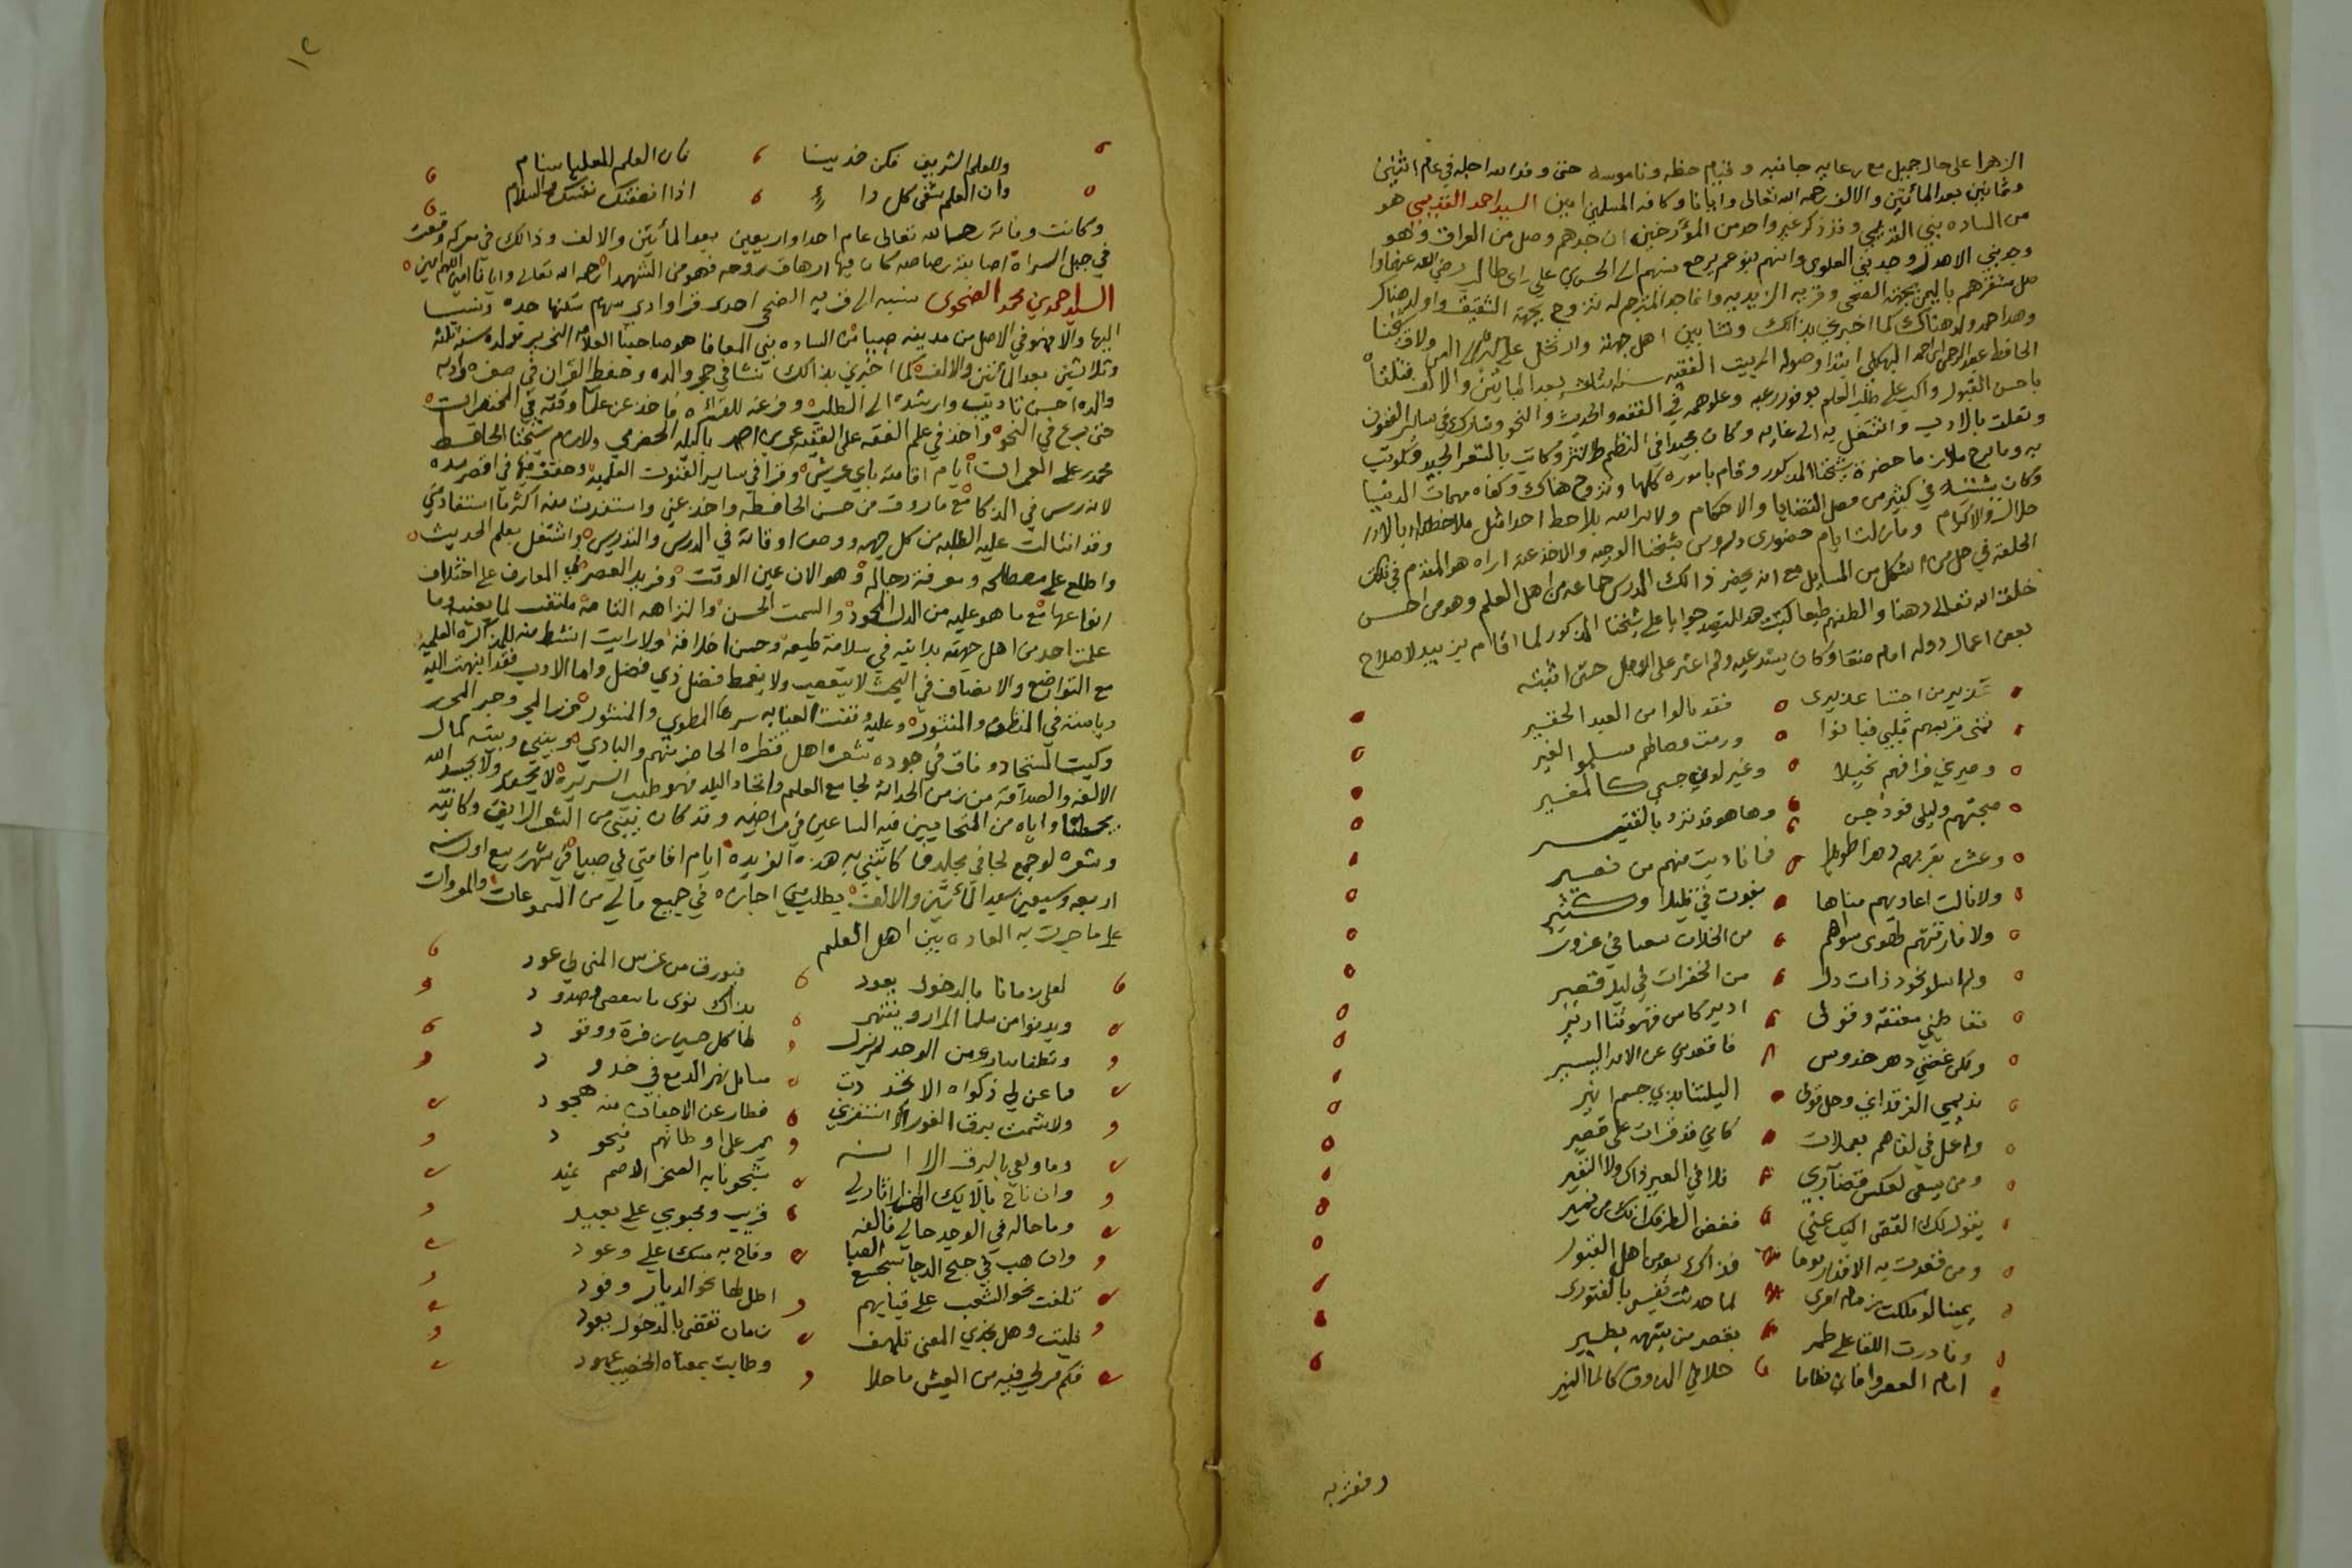 الازهرا على حال جميل مع رعايه جانبه وقيام حظه وناموسه حتى وفد الله اجله في عام اثنين
وثمانين بعد المأتين والالف رحمه الله تعالى وايانا وكافة المسلمين امين السيد احمد القديمي هو
من الساده بني القديمي وقد ذكر غير واحد من المؤرخين ان جدهم وصل من العراق وهو
وجد بني الاهدل وجد بني العلوي وانهم بنو عم يرجع نسبهم الى الحسين بن علي بن ابي طالب رضي الله عنهم
مستقرهم باليمن بجهة الضحي وقريه الزيديه وانما جد المترجم له تزوج بجهة الثقيف واولد هناك
وهذا احمد ولد هناك كما اخبرني بذالك ونشا بين اهل جهته وارتحل الى
الحافظ عبد الرحمن ابن احمد البهكلي ابتدا وصوله الى بيت الفقيه سنة ثلاث بعد المايتين والالف فتلقاه
باحسن القبول واكب على طلب العلم بوفور رغبه وعلو همه في الفقه والحديث والنحو وشارك في ساير الفنون
وتعلق بالادب واشتغل به الى غايه وكان مجيدا في النظم والنثر وكاتب بالشعر الجيد وكوتب
به وما برح ملازما حضرة شيخنا المذكور وقام باموره كلها وتزوج هناك وكفاه مهمات الدنيا
وكان يستنيبه في كثير من فصل القضايا والاحكام ولا يراه يلاحظ احدا مثل ملاحظته له بالادر
حلال والاكرام وما زلت ايام حضوري دروس شيخنا الوجيه والاخذ عنه اراه هو المقدم في تلك
الحلقة في حل ما اشكل من المسايل مع انه يحضر ذالك الدرس جماعه من اهل العلم وهو من احسن
خلق الله تعالى ذهنا والطفهم طبعا كتب هذا القصيد جوابا على شيخنا المذكور لما اقام بزبيد لاصلاح
بعض اعمال دوله امام صنعا وكان يستدعيه ولم اعثر على الاصل حتى اثبته
عذيري من احبتنا عذيري فقد مالوا من العبد الحقير
تمنى قربهم قلبي فبانوا ورمت وصالهم
وصيرني فراقهم نحيلا وغير لوني جسمي كالمغير
صحبتهم وليلي فود جبن وها هو قد تردا بالقتير
وعشت بقربهم دهرا طويلا فناديت منهم من نصير
ولا نالت اعاديهم مناها
ولا فارقتهم لهوى سواهم
ولم اسلو بخود ذات دل من الخفرات في ليل قصير
تعاطيني معتقة وقولي ادير كاس قهوتنا اديري
ولكن غضني دهر خذوس فاقعدني عن الامر اليسير
نديمي الرقداني وحل قولي اليلتنا بذي جسم انيري
واعمل في لقاهم يعملات كاني قد قرات على قصير
ومن يسعى لعكس قضا آبرى فلا في العير ذاك ولا النفير
يقول لك القفي اليك عني فغض الطرف انك من نمير
ومن قعدت به الاقدار يوما فذاك بعد من اهل القبور
يمينا لو ملكت زمام امري لما حدثت نفسي بالفتور
وبادرت اللقا على طمر
امام العصر وافاني نظاما حلا في الذوق كالما النمير
ونعزبه
١٢
وللعلم الشريف فكن خدينا فان العلم للعليا سنام
وان العلم يشفي كل دا اذا انفقتك نفسك والسلام
وكانت وفاته رحمه الله تعالى عام احدا واربعين بعد المأيتين والالف وذالك في معركة وقعت
في جبل السراة اصابته رصاصه كان فيها ازهاق روحه فهو من الشهدا رحمه الله تعالى وايانا امين اللهم امين
السيد احمد بن محمد الضحوي نسبه الى قريه الضحي احدى قرا وادي سهام سكنها جده ونسب
اليها والا فهو في الاصل من مدينه صبيا من الساده بني المعافا هو صاحبنا العلامه النحرير مولده سنة ثلثة
وثلاثين بعد المأتين والالف كما اخبرني بذالك نشا في حجر والده وحفظ القران في صغره وادبه
والده احسن تاديب وارشده الى الطلب وفرغه للقرائه فاخذ عن علما وقته في المختصرات
حتى برع في النحو واخذ في علم الفقه على الفقيه عمر بن احمد باكيله الحضرمي ولازم شيخنا الحافظ
محمد بن علي العمراني ايام اقامته بابي عريش وقرا في ساير الفنون العلميه وحقق فيها في اقصر مده
لانه رس في الذكا مع ما رزق من حسن الحافظه واخذ عني واستفدت منه اكثر مما استفاد مني
وقد انثالت عليه الطلبه من كل جهه ووصل اوقاته في الدرس والتدريس واشتغل بعلم الحديث
واطلع على مصطلحه ومعرفة رجاله وهو الان عين الوقت وفريد العصر في المعارف على اختلاف
انواعها مع ما هو عليه من الدل المحمود والسمت الحسن والنزاهه التامة ملتفت لما يعنيه وما
علمت احد من اهل جهته يدانيه في سلامة طبعه وحسن اخلاقه ولا رايت انشط منه للمذاكره العلميه
مع التواضع والانصاف في البحث لا يتعصب ولا يغمط فضل ذي فضل واما الادب فقد انتهت اليه
رياسته في المنظوم والمنثور وعليه وقفت العنايه سرها المطوي والمنشور
وكيت المستجاد وفاق في جوده شعره اهل قطره الحاضر منهم والبادي وبيني وبينه كمال
الالفه والصداقة من زمن الحداثة لجامع العلم واتحاد البلد فهو طيب السريره لا يحقد ولا يحسد الله
يجعلنا واياه من المتحابين فيه الساعين في مراضيه وقد كان بيني من الشعر الرايق وكاتبته
وشعره لو جمع لجا في مجلد فما كاتبني به هذه الفريده ايام اقامتي في صبيا في شهر ربيع اول سنه
اربعه وسبعين بعد المأتين والالف يطلب مني اجازه في جميع مالي من المسموعات والمرويات
على ما جرت به العاده بين اهل العلم
لعل زمانا بالدخول يعود فيورق من غرس المنى لي عود
ويدنوا من سلما المزار وينتهي بذاك نوى ما بعضى وصدود
وتطفا بنار من الوجد لم تزل لها كل حين زفرة ووقود
وما عن لي ذكراه الا تخددت مسايل نهر الدمع في خدود
ولا شمت برق الغور الا استفزني فطار عن الاجفان منه هجود
وما ولعي بالبرق الا انه يمر على اوطانهم فيجود
وان ناح بالايك الهزار اثار لي شجونا به الصخر الاصم يميد
وما حاله في الوجد حالي فالفه قريب ومحبوبي علي بعيد
وان هب في جنح الدجا نسيم الصبا وفاح به مسك علي وعود
تلفت نحو الشعب على قبابهم اطل لها نحو الديار وفود
فليت وهل يجدي المعنى تلهف زمان تقضى بالدخول يعود
فكم مر لي فيه من العيش ما حلا وطابت بمغناه الخصيب عهود